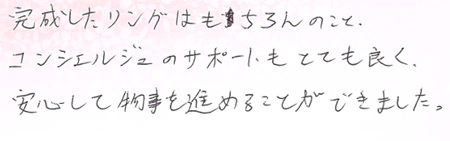 完成したリングはもちろんのこと、
コンシェルジュのサポートもとても良く、
安心して物事を進めることができました。